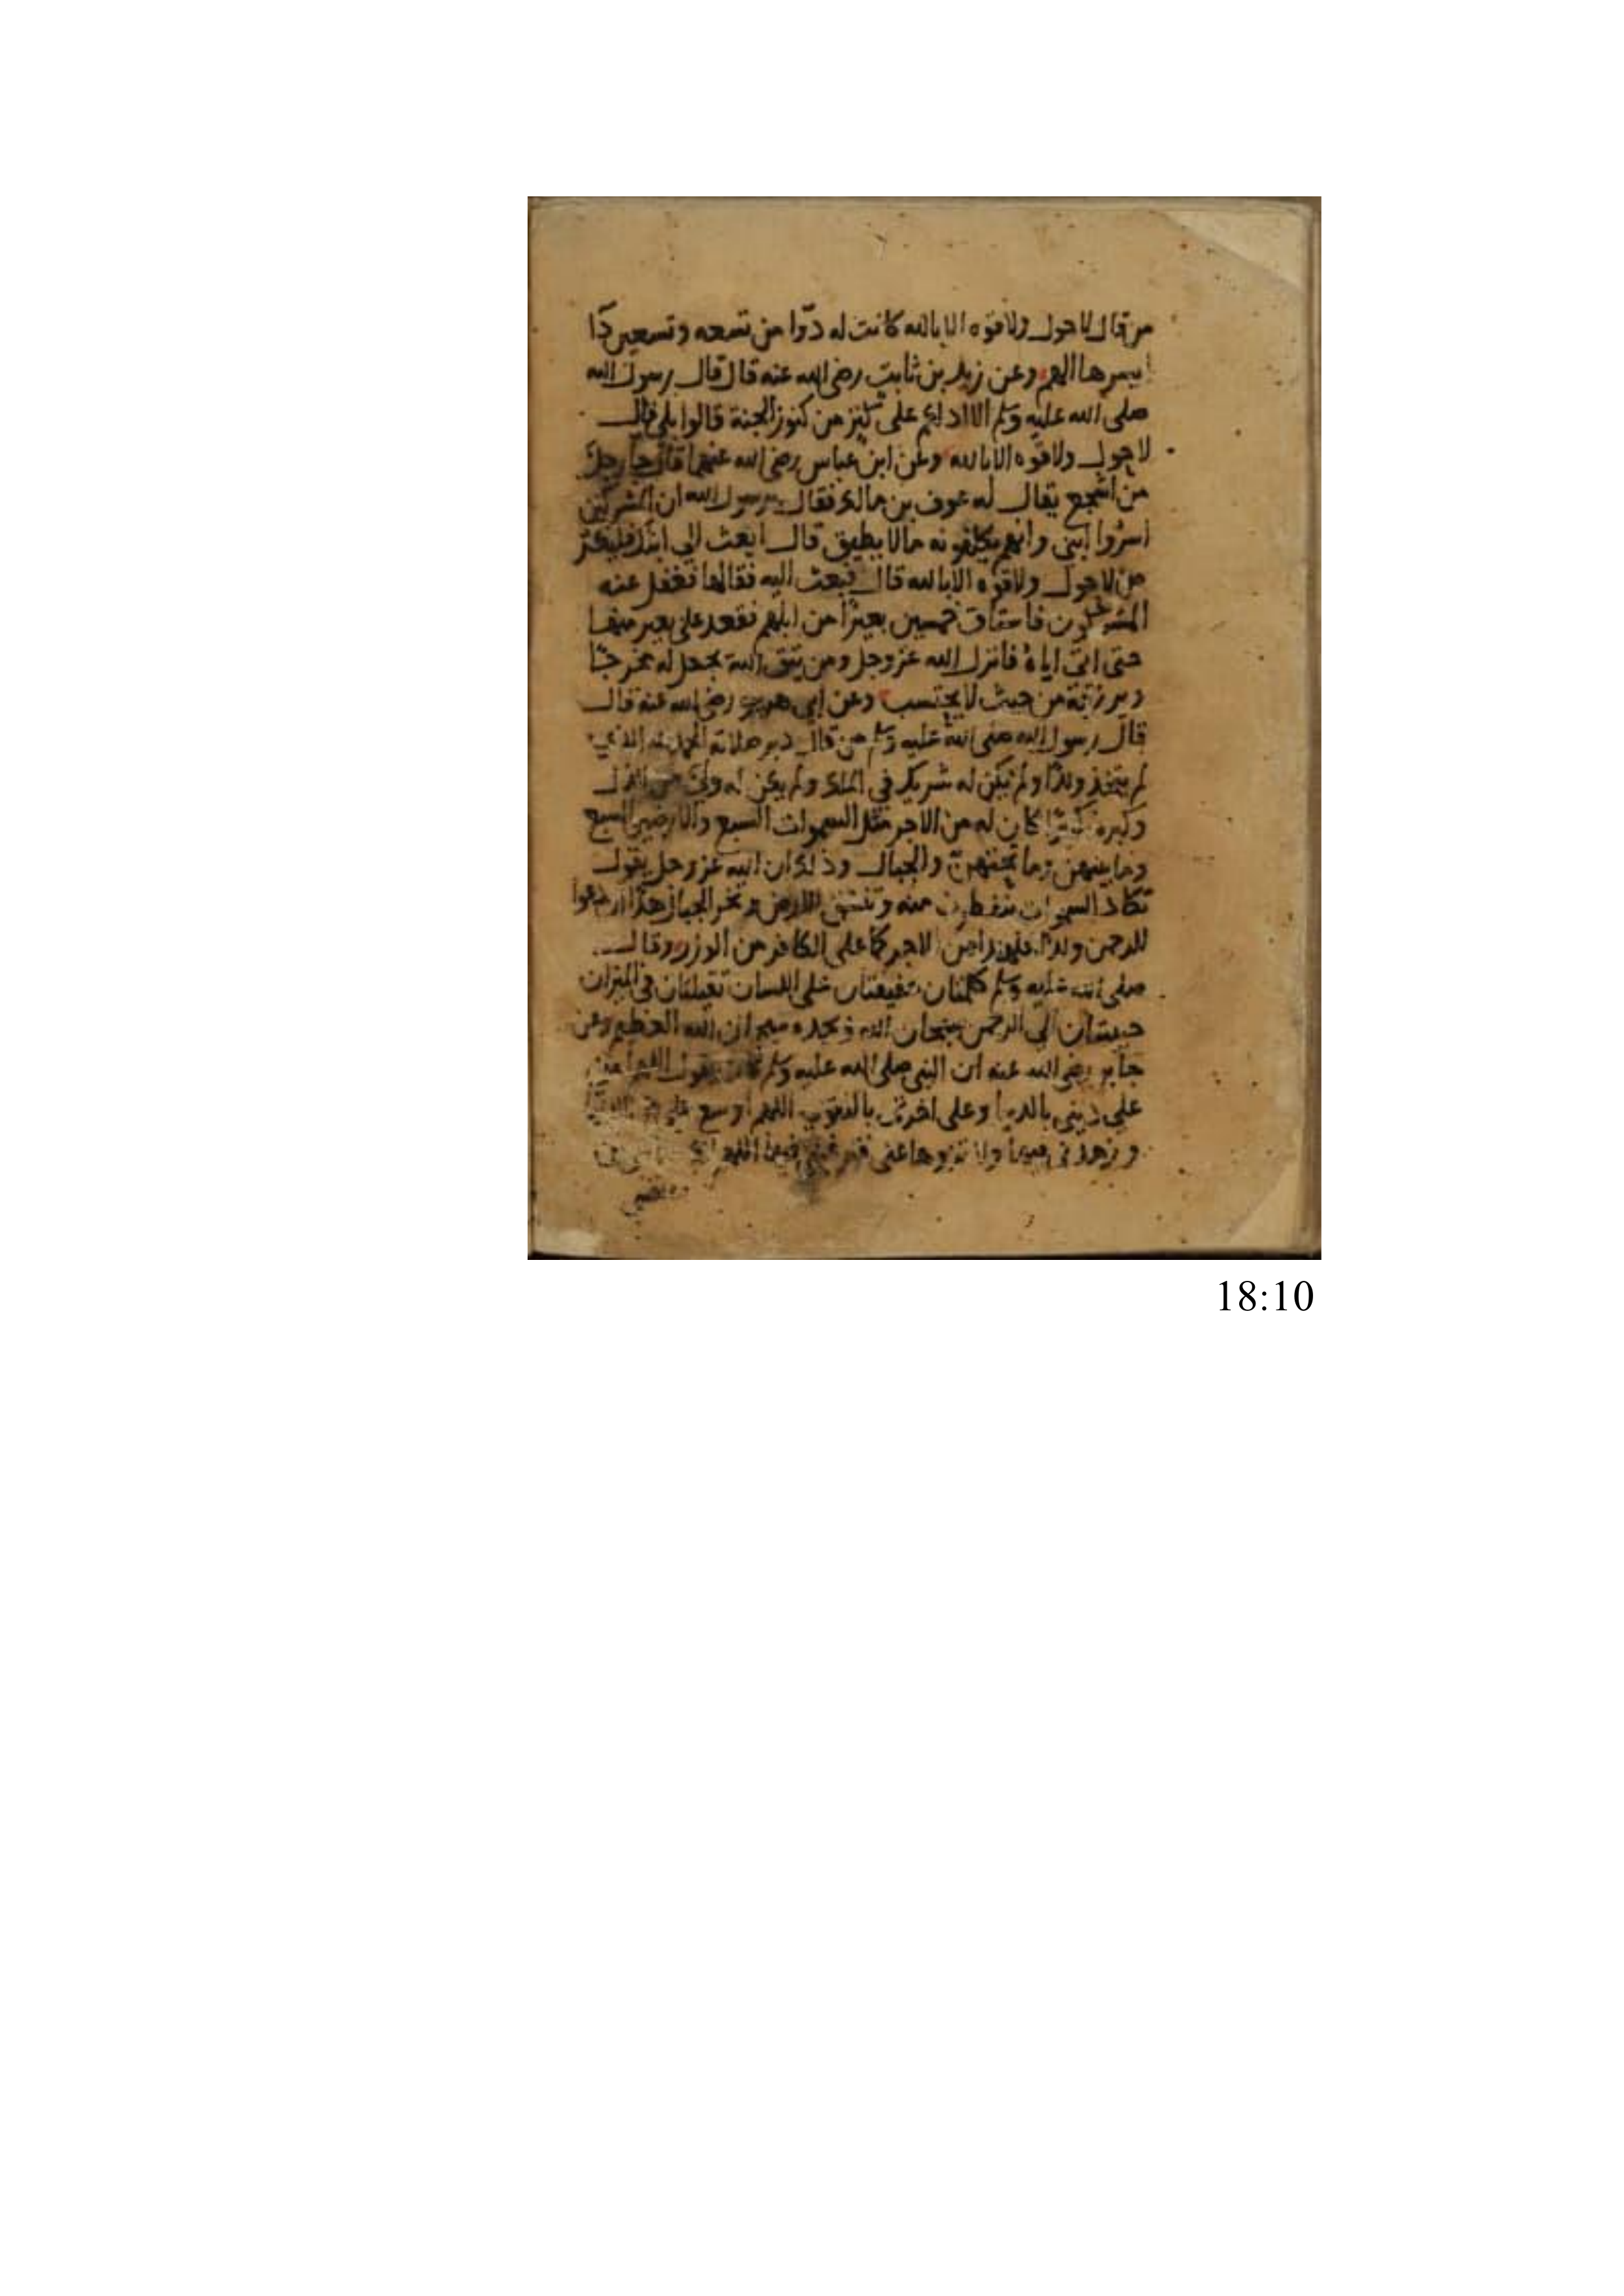 من قال لا حول ولا قوه الا بالله كانت له دوا من تسعه وتسعين دآا
ايسرها الهم وعن زيد بن ثابت رضي الله عنه قال قال رسول الله
صلى الله عليه وسلم الا ادلكم على كنز من كنوز الجنة قالوا بلى قال
لا حول ولا قوه الا بالله وعن ابن عباس رضي الله عنهما قال جا رجل
من اشجع يقال له عوف بن مالك فقال يرسول الله ان المشركين
اسروا ابني وانهم يكلفونه مالا يطيق قال ابعث الي ابنك فليكثر
من لا حول ولا قوه الا بالله قال فبعث اليه فقالها فغفل عنه
المشركون فاستاق خمسين بعيرًا من ابلهم فقعد على بعير منها
حتى اتى اباهُ فانزل الله عز وجل ومن يتق الله يجعل له مخرجًا
ويرزقه من حيث لا يحتسب وعن ابي هريره رضي الله عنه قال
قال رسول الله صلى الله عليه وسلم من قال دبر صلاته الحمد لله الذي
لم يتخذ ولدًا ولم يكن له شريك في الملك ولم يكن له ولي من الذل
وكبره تكبيرًا كان له من الاجر مثل السموات السبع والارضين السبع
وما بينهن وما تحتهن والجبال وذلك ان الله عز وجل يقول
تكاد السموات يتفطرن منه وتنشق الارض وتخر الجبال هدًا ان دعوا
للرحمن ولدًا من الاجر كما على الكافر من الوزر وقال
صلى الله عليه وسلم كلمتان خفيفتان على اللسان ثقيلتان في الميزان
حبيبتان الى الرحمن سبحان الله وبحمده سبحان الله العظيم وعن
جابر رضي الله عنه ان النبي صلى الله عليه وسلم كان يقول اللهم اعني
على ديني بالدنيا وعلى اخرتي بالتقوى اللهم اوسع علي من الدنيا
وزهدني فيها ولا تزوها عني فيها اللهم
18:10